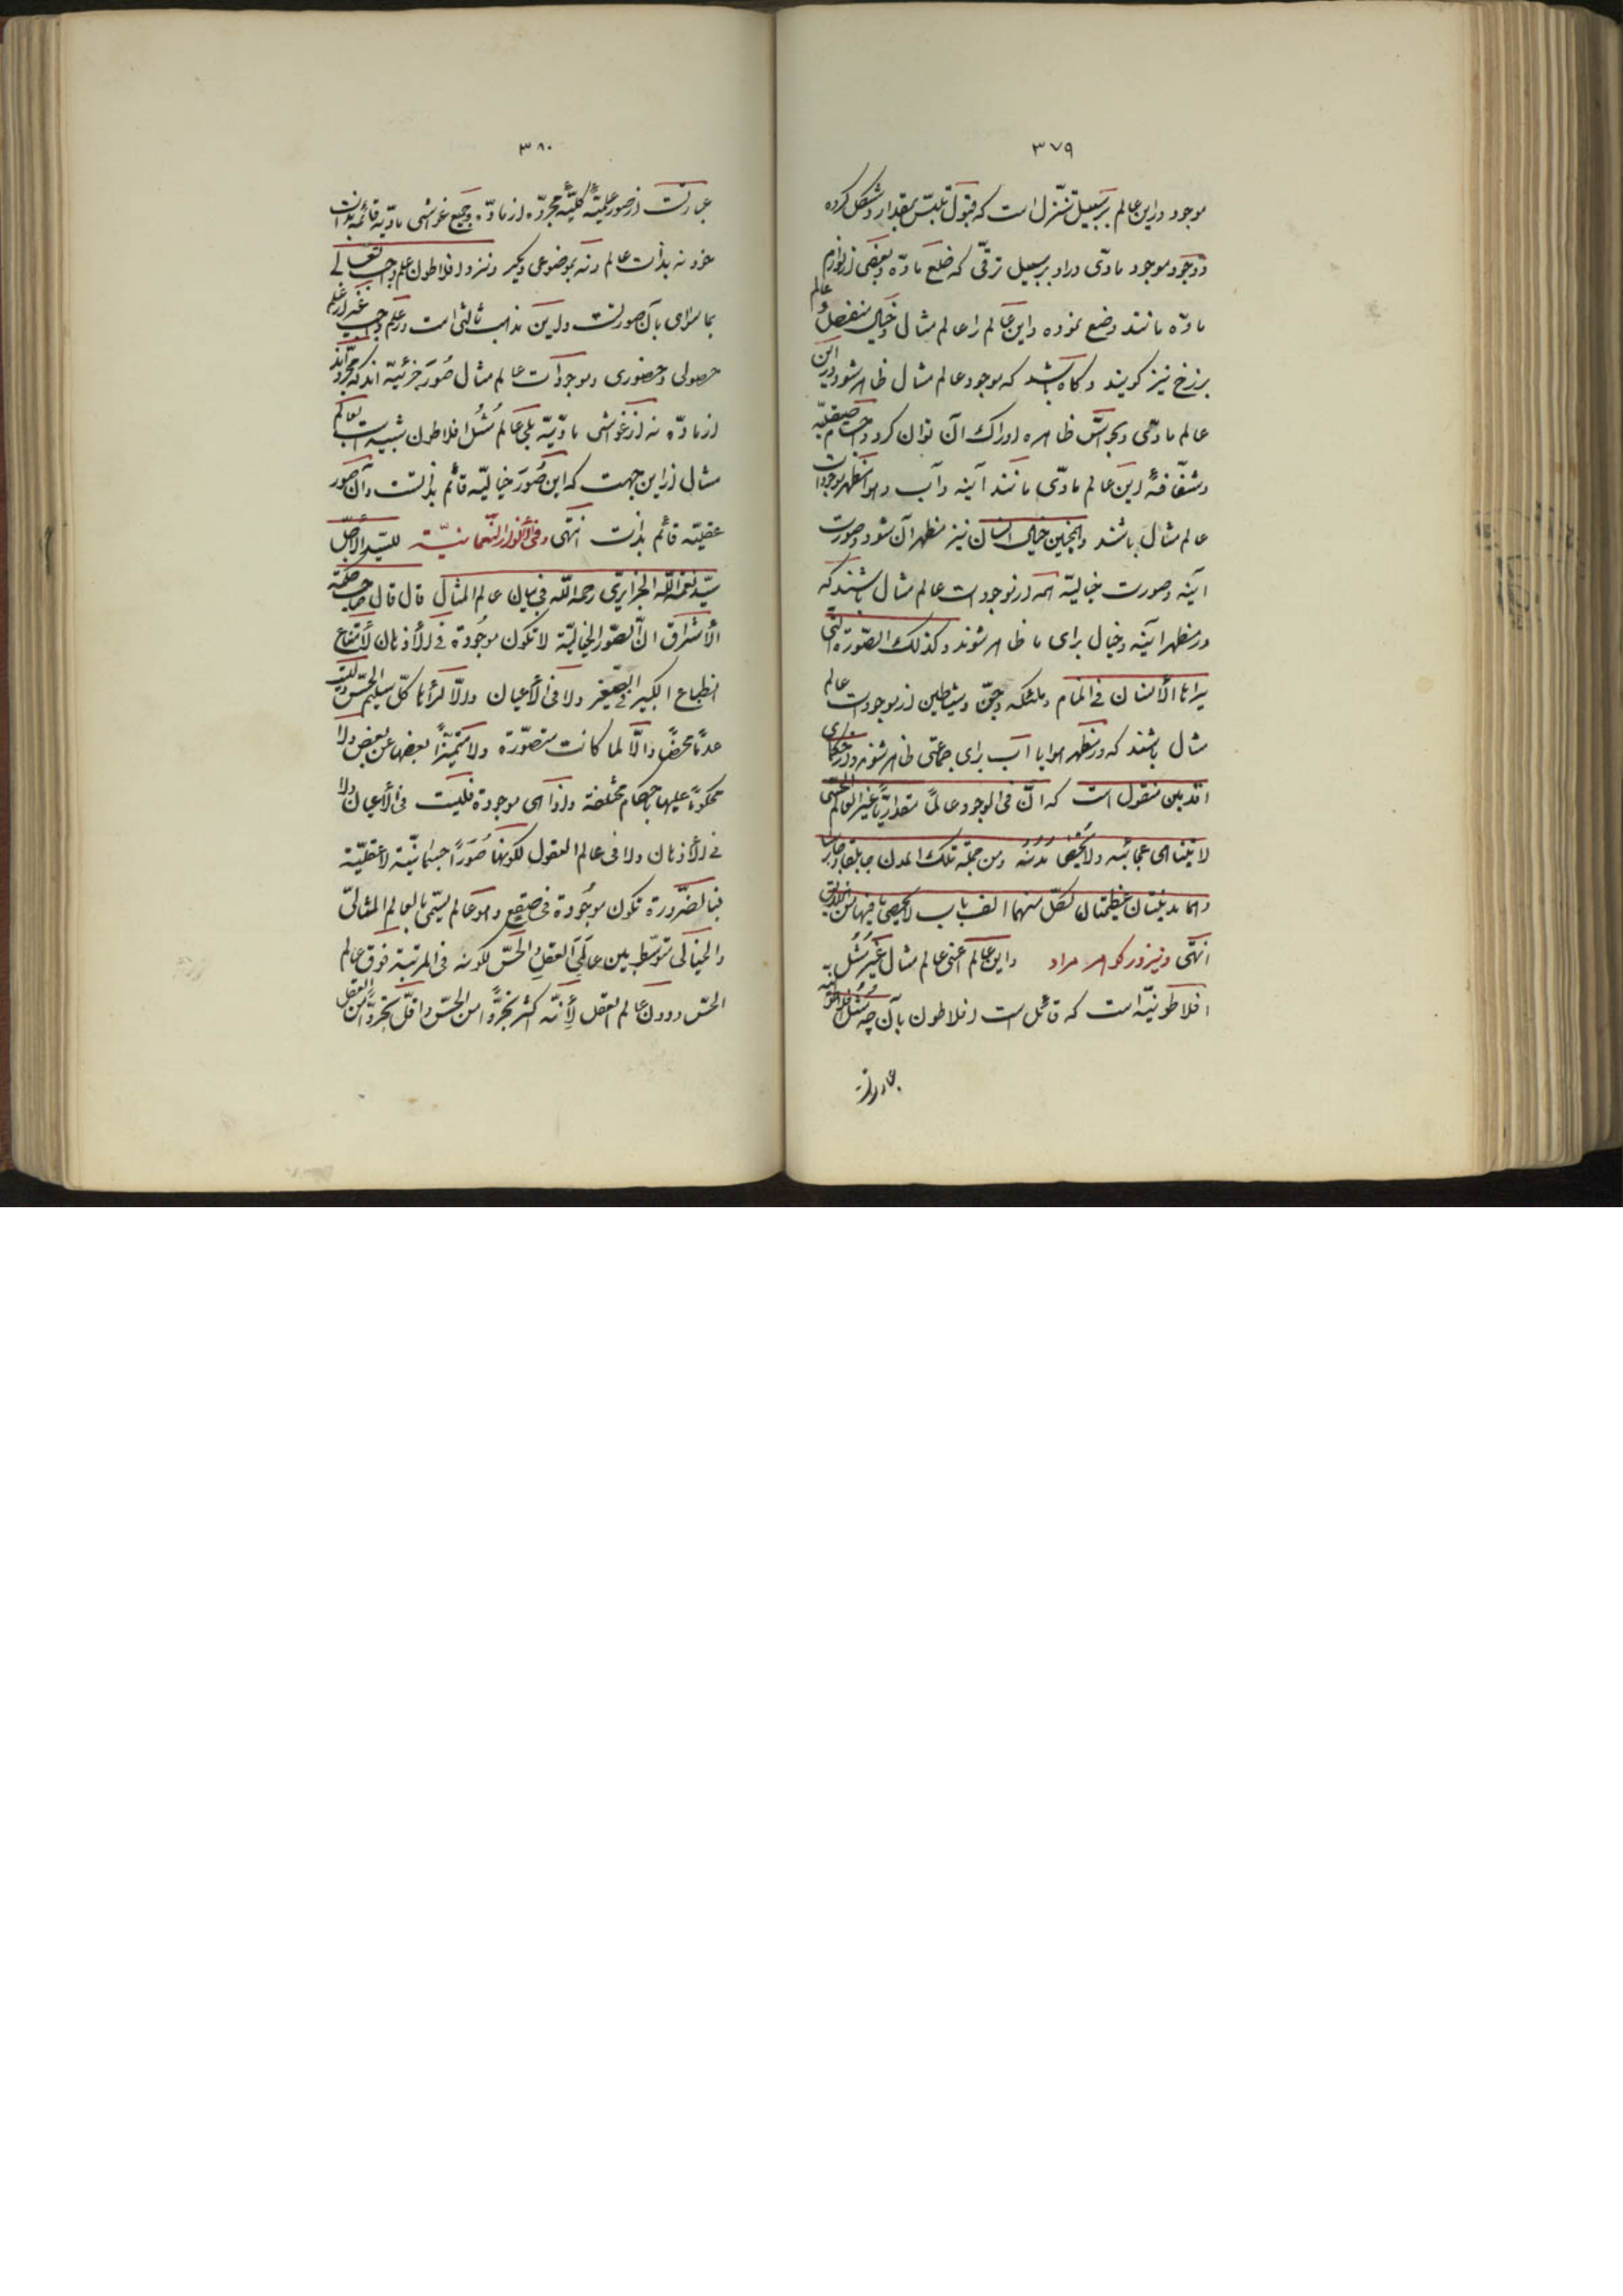 ٣٧٩
موجود در این عالم بر سبیل تنزل است که قبول تلبس بمقدار و شکل کرده
و وجود موجود مادی در او بر سبیل ترقی که خلع ماده و بعضی از لوازم
ماده مانند وضع نموده و این عالم را عالم مثال و خیال منفصل و عالم
برزخ نیز گویند و گاه باشد که موجود عالم مثال ظاهر شود در این
عالم مادی و بحواسّ ظاهره ادراک آن توان کرد و اجسام صیقلیّه
و شفّافهٔ این عالم مادّی مانند آینه و آب و هوا مظهر موجودات
عالم مثال باشند و همچنین خیال انسان نیز مظهر آن شود و صورت
آینه و صورت خیالیّه همه از موجودات عالم مثال باشند که
در مظهر آینه و خیال برای ما ظاهر شوند و کذلک الصّورة التی
یراها الأنسان فی المنام و ملئکه و جنّ و شیاطین از موجودات عالم
مثال باشند که در مظهر هوا یا آب برای جماعتی ظاهر شوند و از حکمای
اقدمین منقول است که انّ فی الوجود عالمًا مقداریًّا غیر العالم الحسّی
لا یتناهی عجائبه و لا یحصی مُدُنُه و من جملة تلک المدن جابلقا و جابرسا
و هما مدینتان عظیمتان لکلّ منهما الف باب لا یحصی ما فیها من الخلایق
انتهی و نیز در گوهر مراد و این عالم اعنی عالم مثال غیر مُثُل
افلاطونیّه است که قائل است افلاطون بآن چه مُثُل افلاطونیّه
عبارتست
٣٨٠
عبارتست از صور علمیّهٔ کلّیّهٔ مجرّده از مادّه و جمیع غواشی مادّیه قائمه بذات
خود نه بذات عالم و نه بموضوعی دیگر و نزد افلاطون علم واجب تعالی
بماسوای بآن صورتست و این مذهب ثالثی است در علم واجب غیر از علم
حصولی و حضوری و موجودات عالم مثال صُوَر جزئیّه اند که مجرّداند
از مادّه نه از غواشی مادّیّه بلی عالم مُثُل افلاطون شبیه است بعالم
مثال از این جهت که این صُوَر خیالیّه قائم بذاتست و آن صور
عقلیّه قائم بذات انتهی و فی الأنوار النّعمانیّة للسّید الأجلّ
سیّد نعمة الله الجزایری رحمه الله فی بیان عالم المثال قال قال صاحب حکمة
الأشراق انّ الصّور الخیالیّة لا تکون موجودة فی الأذهان لأمتناع
انطباع الکبیر فی الصّغیر و لا فی الأعیان و الّا لرأها کلّ سلیم الحسّ و لیست
عدمًا محضًا و الّا لما کانت متصوّرة و لا متمیّزًا بعضها عن بعض و لا
محکومًا علیها باحکام مختلفة و اذا هی موجودة فلیست فی الأعیان و لا
فی الأذهان و لا فی عالم العقول لکونها صُوَرًا جسمانیّة لا عقلیّة
فبالضّرورة تکون موجُودة فی صقع و هو عالم یسمّی بالعالم المثالیّ
و الخیالی متوسّط بین عالَمَی العقل و الحسّ لکونه فی المرتبة فوق عالم
الحسّ و دون عالم العقل لأنّه اکثر تجرّدًا من الحسّ و اقلّ تجرّدًا من العقل